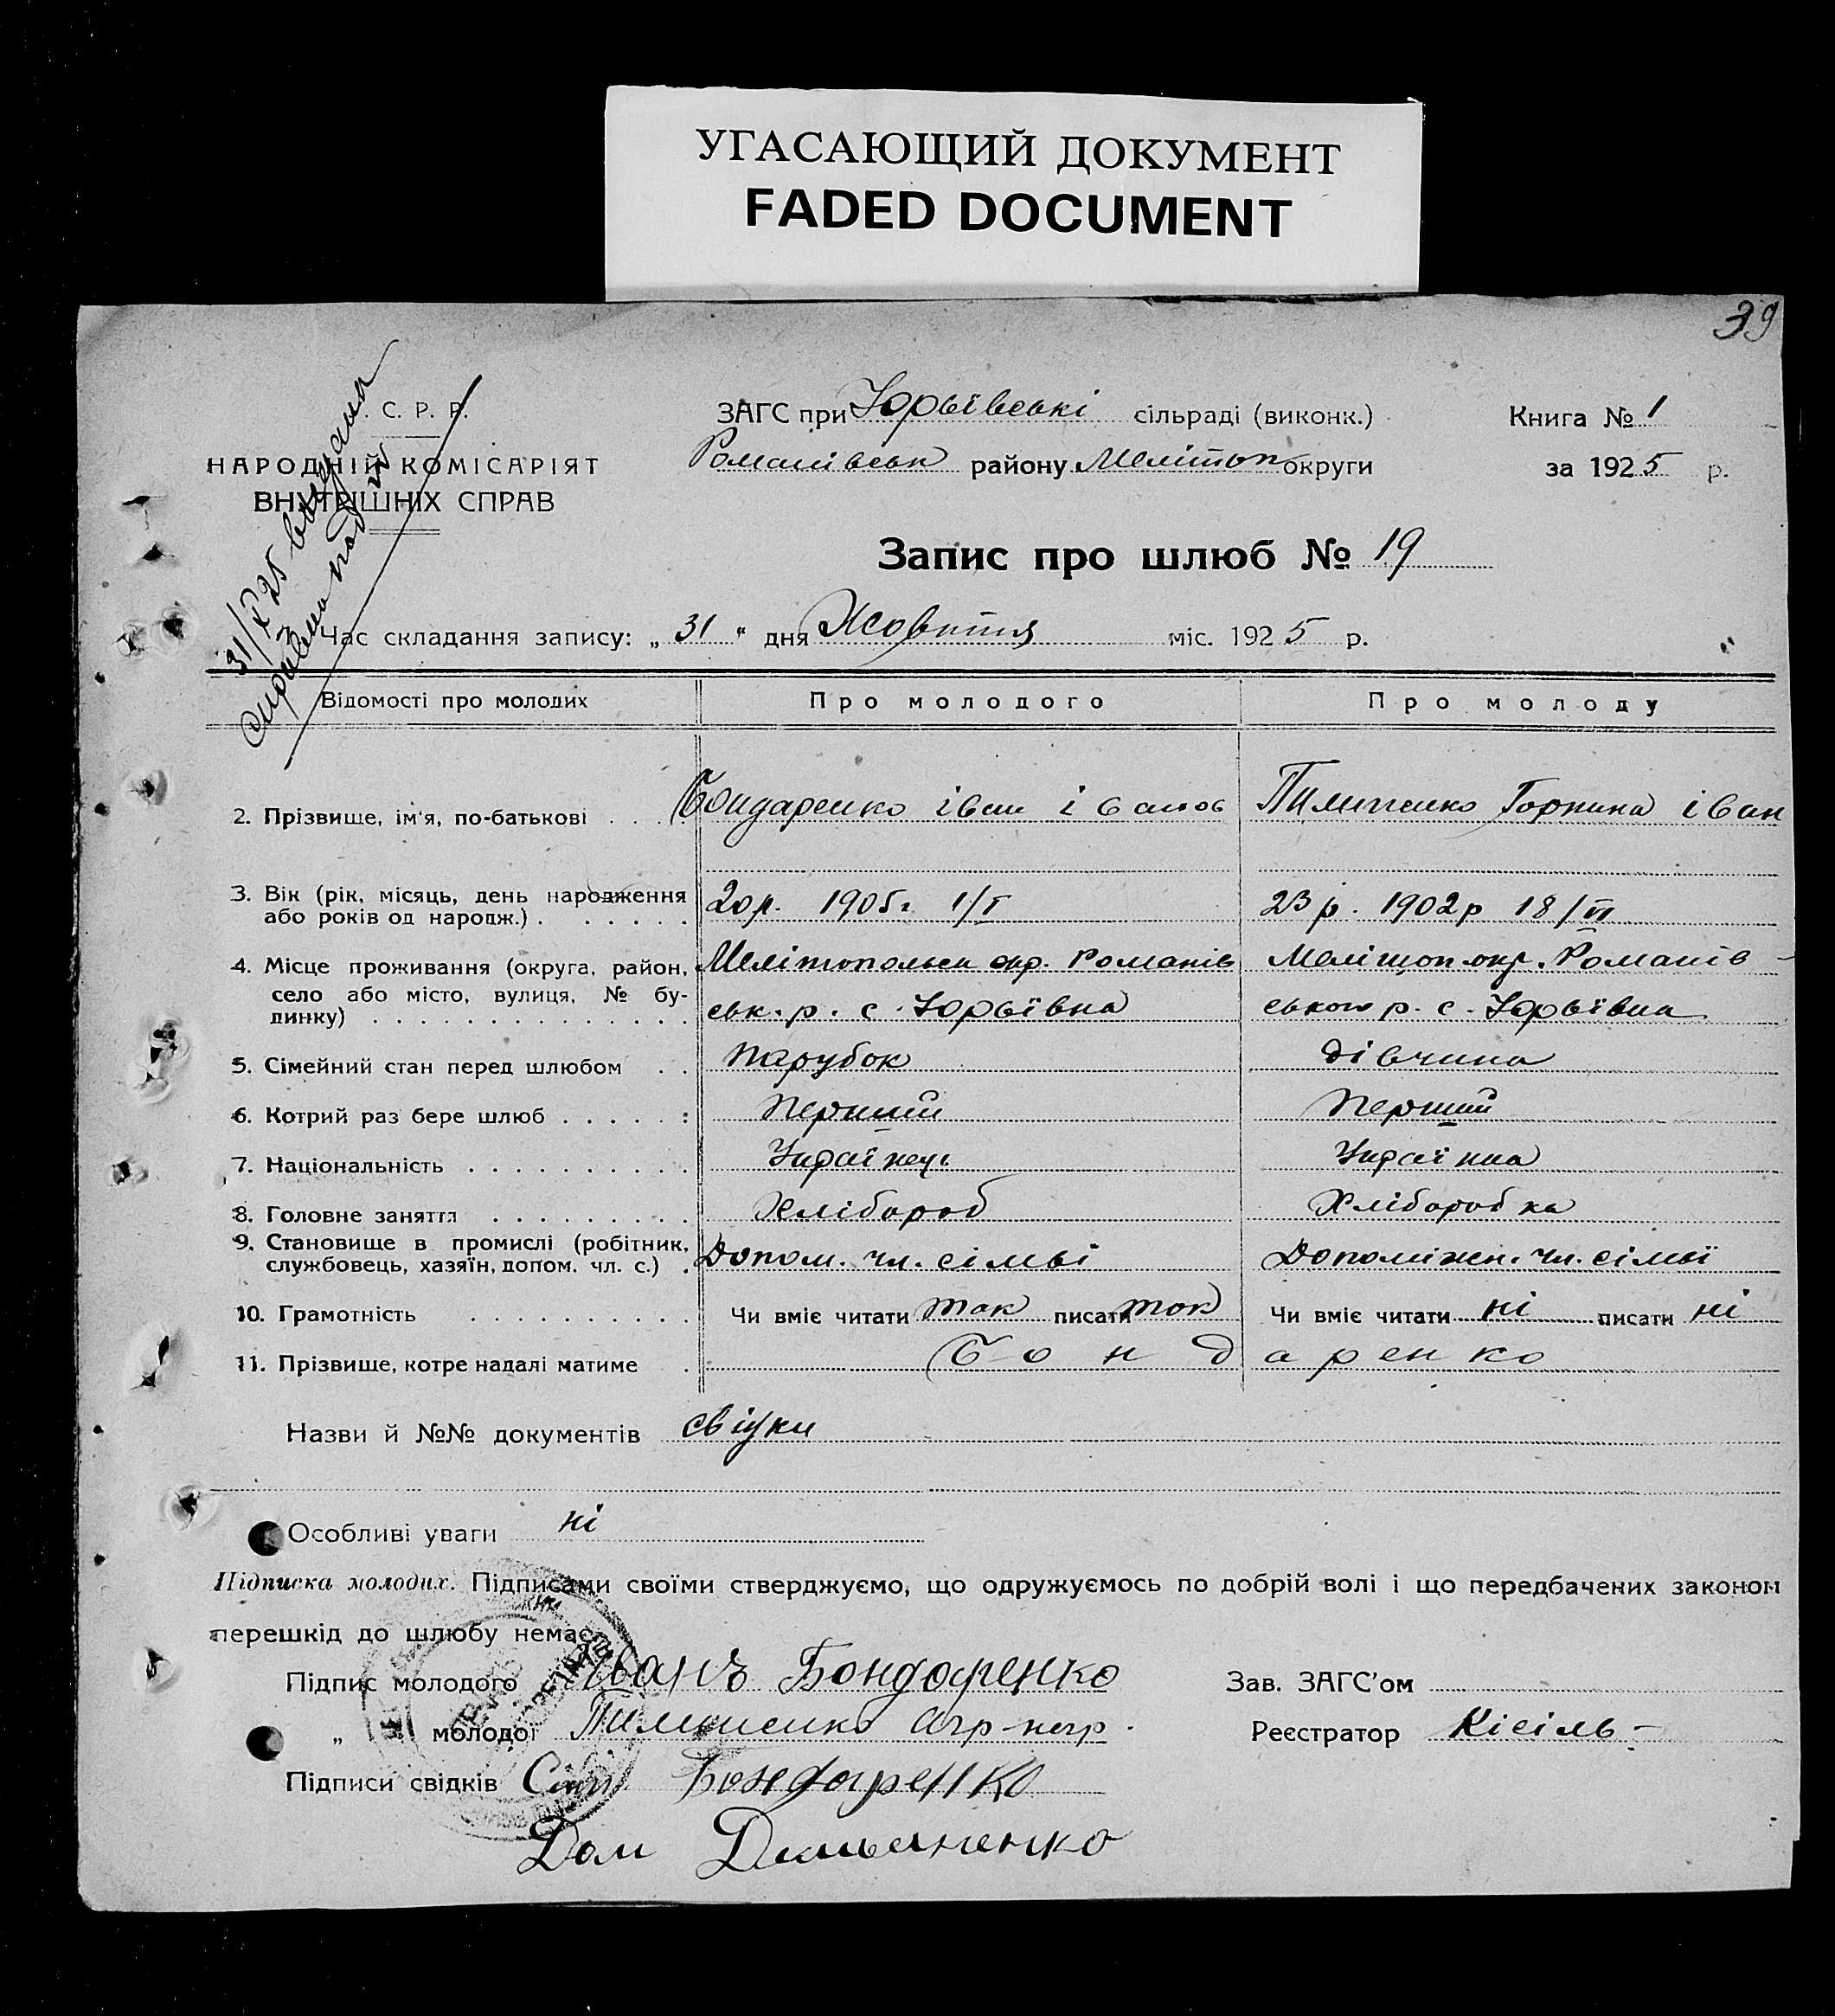 УГАСАЮЩИЙ ДОКУМЕНТ
FADED DOCUMENT
39
С. Р. Р.
НАРОДНІЙ КОМІСАРІЯТ
ВНУТРІШНІХ СПРАВ
31/X 25 видана
справка под №
ЗАГС при Юрьївські сільраді (виконк.)
Книга № 1
Романівськ района Мелітоп округи
за 1925 р.
Запис про шлюб № 19
Час складання запису: „ 31 " дня Жовтня міс. 1925 р.
Відомості про молодих
Про молодого
Про молоду
2. Прізвище, ім'я, по-батькові
Бондаренко іван іванов
Пилипенко Горпина іван
3. Вік (рік, місяць, день народження
або років од народж.)
20р. 1905г 1/I
23 р. 1902р 18/VI
4. Місце проживання (округа, район,
село або місто, вулиця, № бу-
динку)
Мелітопольськ окр. Романів
ськ. р. с. Юрьївна
Мелітоп окр. Романів-
ського р. с. Юрьївна
5. Сімейний стан перед шлюбом
парубок
дівчина
6. Котрий раз бере шлюб
перший
перший
7. Національність
Українець
Українка
8. Головне заняття
Хлібороб
Хліборобка
9. Становище в промислі (робітник,
службовець, хазяїн, допом. чл. с.)
Допом. чл. сімьі
Допоміжн. чл. сімьї
10. Грамотність
Чи вміє читати так писати так
Чи вміє читати ні писати ні
11. Прізвище, котре надалі матиме
Бондаренко
Назви й №№ документів свідки
Особливі уваги ні
Підписка молодих. Підписами своїми стверджуємо, що одружуємось по добрій волі і що передбачених законом
перешкід до шлюбу немає.
Підпис молодого Иванъ Бондаренко
Зав. ЗАГС'ом
„ молодої Пилипенко
Реєстратор Кісіль
Підписи свідків Бондаренко
Дом Демьяненко